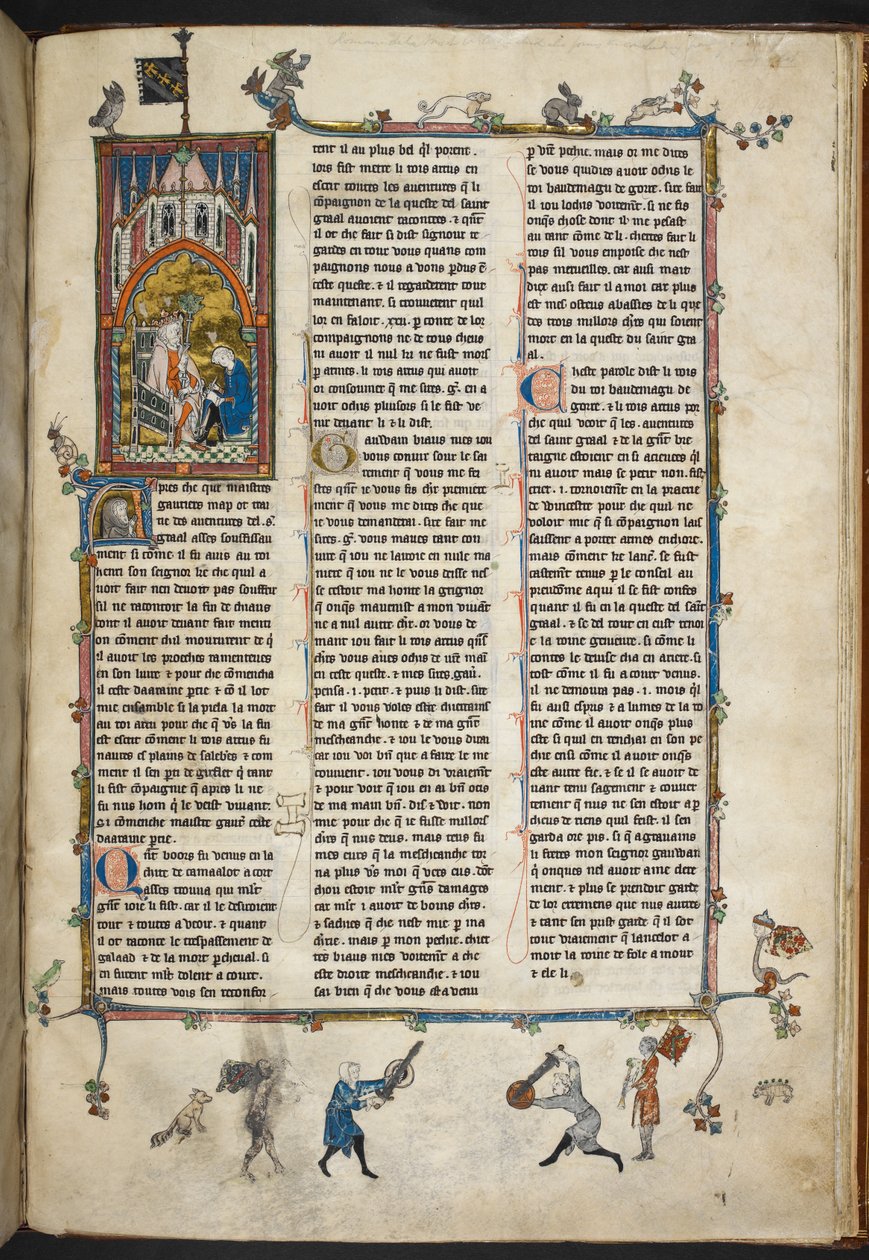 pres che que maistres
gautiers map ot trai
tie des auentures del .s.
graal asses souffissau
ment si cōme. il fu auis au roi
henri son seignor ke che quil a
uoit fait nen deuoit pas souffire
sil ne racontoit la fin de chiaus
dont il auoit deuant fait menti
on cōment chil moururent de q̄
il auoit les proeches ramenteues
en son liure & pour che cōmencha
il ceste daaraine ꝑtie & cō il lot
mie ensamble si la piela la mort
au roi artu pour che que vs la fin
est escrit cōment li rois artus fu
naures es plains de salebes & com
ment il sen ꝑti de girflet q̄ tant
li fist cōpaignie q̄ apres li ne
fu nus hom q̄ le veist viuant.
Si cōmenche maistre gautiers ceste
daaraine ꝑtie.
Qnt boors fu venus en la
chite de camaalot a cort
asses trouua qui mlt
gnt ioie li fist. car il le desiroient
tout & toutes a veoir. & quant
il ot raconte le trespassement de
galaad & de la mort ꝑcheual. si
en furent mlt dolent a court.
mais toutes vois sen recōfor
rent il au plus bel ql porent.
lors fist metre li rois artus en
escrit toutes les auentures q̄ li
cōpaignon de la queste del saint
graal auoient racontees. & qnt
il ot che fait si dist signour re
gardes en tour vous quans com
paignons nous a vons perdus ē
ceste queste. & il regarderent tout
maintenant. si trouuerent quil
lor en faloit .xxii. ꝑ conte de lor
compaignons ne de tous cheus
ni auoit il nul ki ne fust mors
ꝑ armes. li rois artus qui auoit
oi consoumer q̄ me sires .G. en a
uoit ochis pluisors si le fist ve
nir deuant li & li dist.
Gauuain biaus nies iou
vous coniur sour le sai
rement q̄ vous me fe
stes qnt ie vous fis chr premiere
ment q̄ vous me dites che que
ie vous demanderai. sire fait me
sires .G. vous maues tant con
iure q̄ iou ne lairoie en nule ma
niere q̄ iou ne le vous desisse nes
se cestoit ma honte la grignor
q̄ onqs mauenist a mon viuāt
ne a nul autre chr. or vous de
mant iou fait li rois artus qns
chrs vous aues ochis de vostre mai
en ceste queste. & mes sires .gau.
pensa .i. pent. & puis li dist. sire
fait il vous voles estre chertains
de ma gnt honte & de ma gnt
mescheanche. & iou le vous dirai
car iou voi bn q̄ a faire le me
couuient. iou vous di vraiemt
& pour voir q̄ iou en ai bn ochis
de ma main bn. dis & wit. non
mie pour che q̄ ie fusse millors
chrs q̄ nus deus. mais teus fu
mes eurs q̄ la mescheanche tor
na plus vs moi q̄ vers eus. dōt
chou estoit mlt gns damages
car mlt i auoit de boins chrs.
& sachies q̄ che nest mie ꝑ ma
chrie. mais ꝑ mon pechie. chier
tes biaus nies voiremt a che
este droite mescheanche. & iou
sai bien q̄ che vous est a venu
ꝑ vre pechie. mais or me dites
se vous quidies auoir ochis le
roi baudemagu de gorre. sire fait
il iou lochis voiremt. si ne fis
onqs chose dont il me pesast
au tant cōme de li. chertes fait li
rois sil vous empoise che nest
pas merueilles. car ausi mait
diex ausi fait il a moi car plus
est mes osteus abaissies de li que
des trois millors chrs qui soient
mort en la queste du saint gra
al.
Cheste parole dist li rois
du roi baudemagu de
gorre. & li rois artus por
che quil veoit q̄ les auentures
del saint graal & de la gnt bre
taigne estoient en si acieues ql
ni auoit mais se petit non. fist
crier .i. tornoiemt en la praerie
de wincestre pour che quil ne
voloit mie q̄ si cōpaignon lais
saissent a porter armes enchore.
mais cōment ke lanc. se fust
castemt tenus ꝑ le conseil au
preudōme aqui il se fist confes
quant il fu en la queste del sait
graal. & se del tout en eust renoi
e la roine genieure. si cōme li
contes le deuise cha en ariere. si
tost cōme il fu a court venus.
il ne demoura pas .i. mois ql
fu ausi espris & a lumes de la ro
ine cōme il auoit onqs plus
este si quil en renchai en son pe
chie ensi cōme il a voit onqs
este autre fie. & se il se auoit de
uant tenu sagement & couuer
tement q̄ nus ne sen estoit a ꝑ
cheus de riens quil feist. il sen
garda ore pis. si q̄ agrauains
li freres mon seignor gauuain
q̄ onques nel auoit ame clere
ment. & plus se prendoit garde
de lor erremens que nus autres
& tant sen prist garde q̄ il sot
tout vraiement q̄ lancelot a
moit la roine de fole a mour
& ele li.